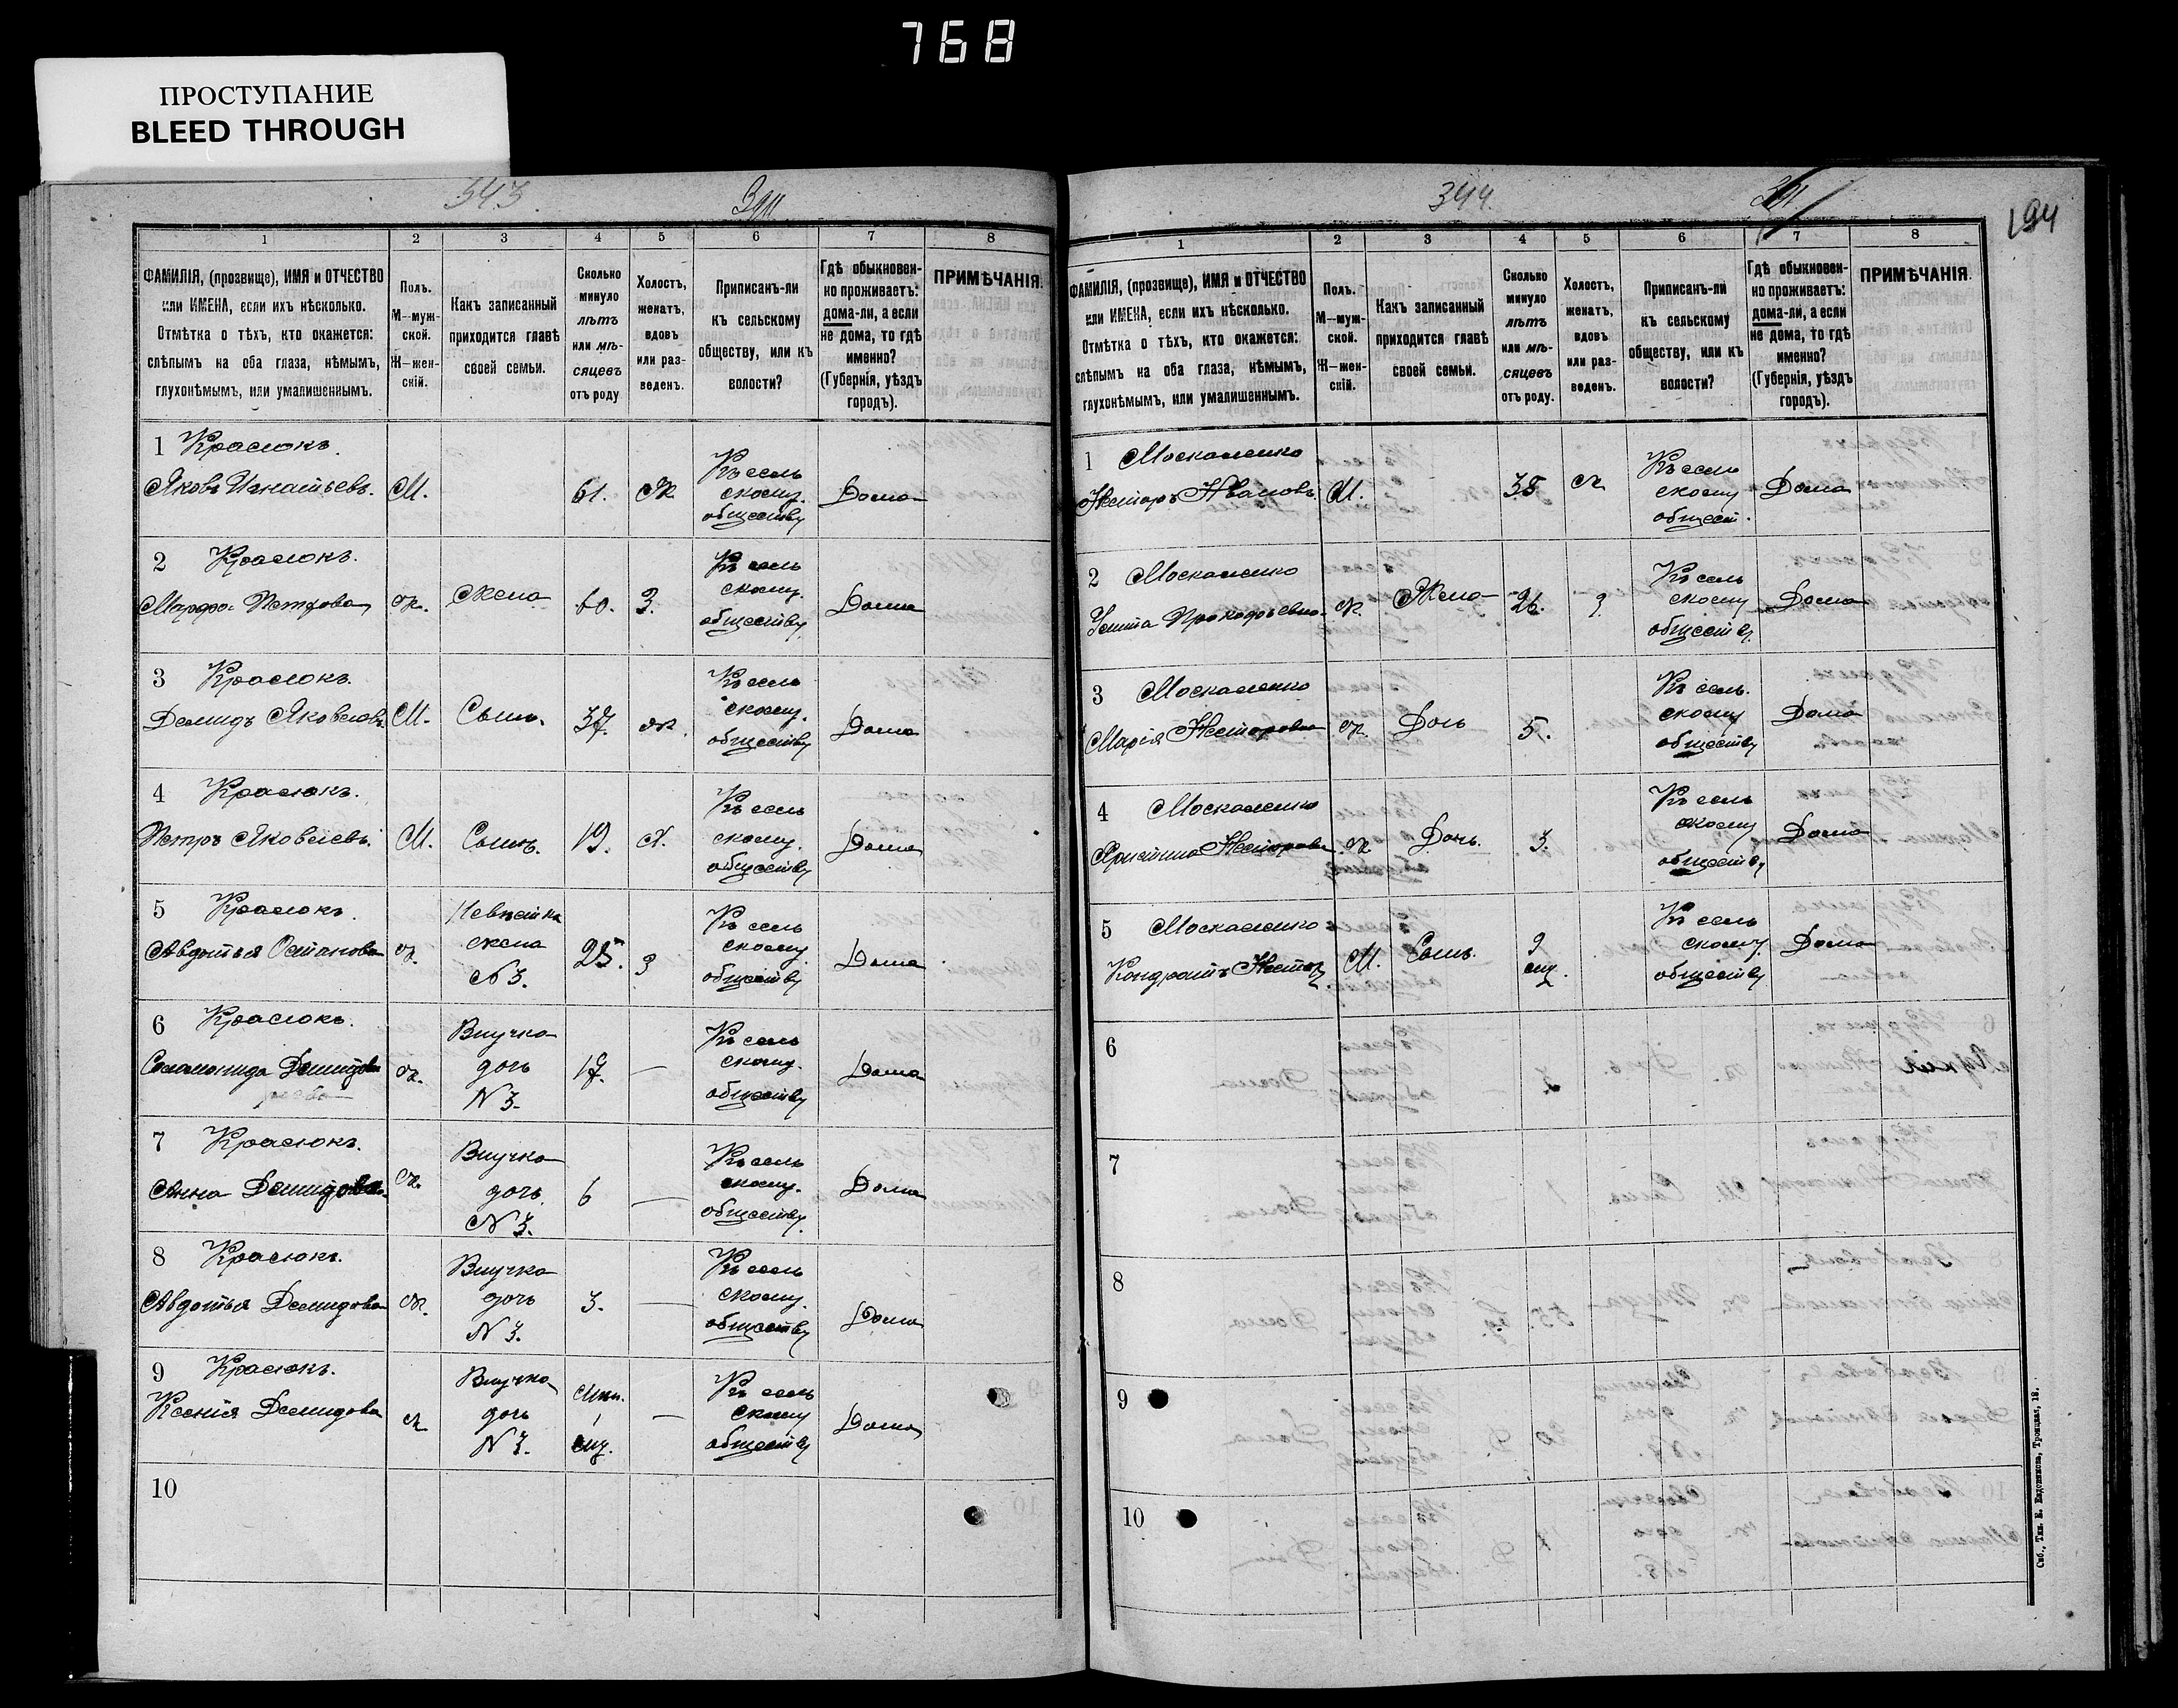 768
ПРОСТУПАНИЕ
BLEED THROUGH
343.
1 2 3 4 5 6 7 8
ФАМИЛІЯ, (прозвище), ИМЯ и ОТЧЕСТВО или ИМЕНА, если ихъ нѣсколько. Отмѣтка о тѣхъ, кто окажется: слѣпымъ на оба глаза, нѣмымъ, глухонѣмымъ, или умалишеннымъ.
Полъ. М—мужской. Ж—женскій.
Какъ записанный приходится главѣ своей семьи.
Сколько минуло лѣтъ или мѣсяцевъ отъ роду
Холостъ, женатъ, вдовъ или разведенъ.
Приписанъ-ли къ сельскому обществу, или къ волости?
Гдѣ обыкновенно проживаетъ: дома-ли, а если не дома, то гдѣ именно? (Губернія, уѣздъ городъ).
ПРИМѢЧАНІЯ.
1 Красюкъ.
Яковъ Игнатьевъ. М. 61. Ж Къ сельскому обществу Дома
2 Красюкъ.
Марфа Петрова ж. Жена 60. З. Къ сельскому обществу Дома
3 Красюкъ.
Демидъ Яковлевъ М. Сынъ. 37. ж. Къ сельскому обществу Дома
4 Красюкъ.
Петръ Яковлевъ. М. Сынъ. 19. Х. Къ сельскому обществу Дома
5 Красюкъ.
Авдотья Остапова ж. Невѣстка жена N 3. 25. З Къ сельскому обществу Дома
6 Красюкъ.
Соломонида Демидова ж. Внучка дочь N 3. 17. — Къ сельскому обществу Дома
7 Красюкъ.
Анна Демидова ж. Внучка дочь N 3. 6 — Къ сельскому обществу Дома
8 Красюкъ.
Авдотья Демидова ж. Внучка дочь N 3. 3. — Къ сельскому обществу Дома
9 Красюкъ.
Ксенія Демидова ж Внучка дочь N 3. 1 мц. — Къ сельскому обществу Дома
10
344.
194
1 2 3 4 5 6 7 8
ФАМИЛІЯ, (прозвище), ИМЯ и ОТЧЕСТВО или ИМЕНА, если ихъ нѣсколько. Отмѣтка о тѣхъ, кто окажется: слѣпымъ на оба глаза, нѣмымъ, глухонѣмымъ, или умалишеннымъ.
Полъ. М—мужской. Ж—женскій.
Какъ записанный приходится главѣ своей семьи.
Сколько минуло лѣтъ или мѣсяцевъ отъ роду.
Холостъ, женатъ, вдовъ или разведенъ.
Приписанъ-ли къ сельскому обществу, или къ волости?
Гдѣ обыкновенно проживаетъ: дома-ли, а если не дома, то гдѣ именно? (Губернія, уѣздъ городъ).
ПРИМѢЧАНІЯ.
1 Москаленко
Несторъ Ивановъ. М. 35 ж Къ сельскому общест. Дома
2 Москаленко
Улита Прокофьевна ж. Жена 26. З Къ сельскому обществу Дома
3 Москаленко
Марія Несторовна ж Дочь 5. Къ сельскому обществу Дома
4 Москаленко
Христина Несторова ж Дочь. 3. Къ сельскому обществу Дома
5 Москаленко
Кондратъ Нестор. М. Сынъ. 9 мц. Къ сельскому обществу Дома
6
7
8
9
10
Спб., Тип. Е. Евдокимова, Троицкая, 18.